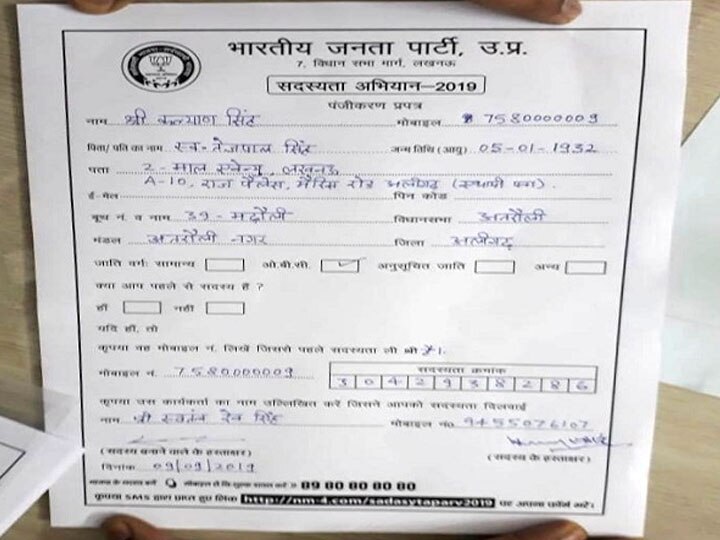 भारतीय जनता पार्टी, उ.प्र.
7, विधान सभा मार्ग, लखनऊ
सदस्यता अभियान–2019
पंजीकरण प्रपत्र
नाम श्री कल्याण सिंह मोबाइल 7580000009
पिता/पति का नाम स्व॰ तेजपाल सिंह जन्म तिथि (आयु) 05-01-1932
पता 2-माल एवेन्यू, लखनऊ
A-10, राज पैलेस, मैरिस रोड अलीगढ़ (स्थायी पता).
ई-मेल पिन कोड
बूथ नं. व नाम 39-मढ़ौली विधानसभा अतरौली
मंडल अतरौली नगर जिला अलीगढ़
जाति वर्गः सामान्य ओ.बी.सी. ✓ अनुसूचित जाति अन्य
क्या आप पहले से सदस्य हैं ?
हाँ नहीं
यदि हाँ, तो
कृपया वह मोबाइल नं. लिखें जिससे पहले सदस्यता ली थी
मोबाइल नं. 7580000009
सदस्यता क्रमांक
3042938286
कृपया उस कार्यकर्ता का नाम उल्लिखित करें जिसने आपको सदस्यता दिलवाई
नाम श्री स्वतंत्र देव सिंह मोबाइल नं० 9455076107
(सदस्य बनाने वाले के हस्ताक्षर) (सदस्य के हस्ताक्षर)
दिनांक 09/09/2019
भाजपा के सदस्य बनें मोबाइल से 89 80 80 80 80
कृपया SMS द्वारा प्राप्त हुए लिंक http://nm-4.com/sadasytaparv2019 पर अपना फॉर्म भरें।